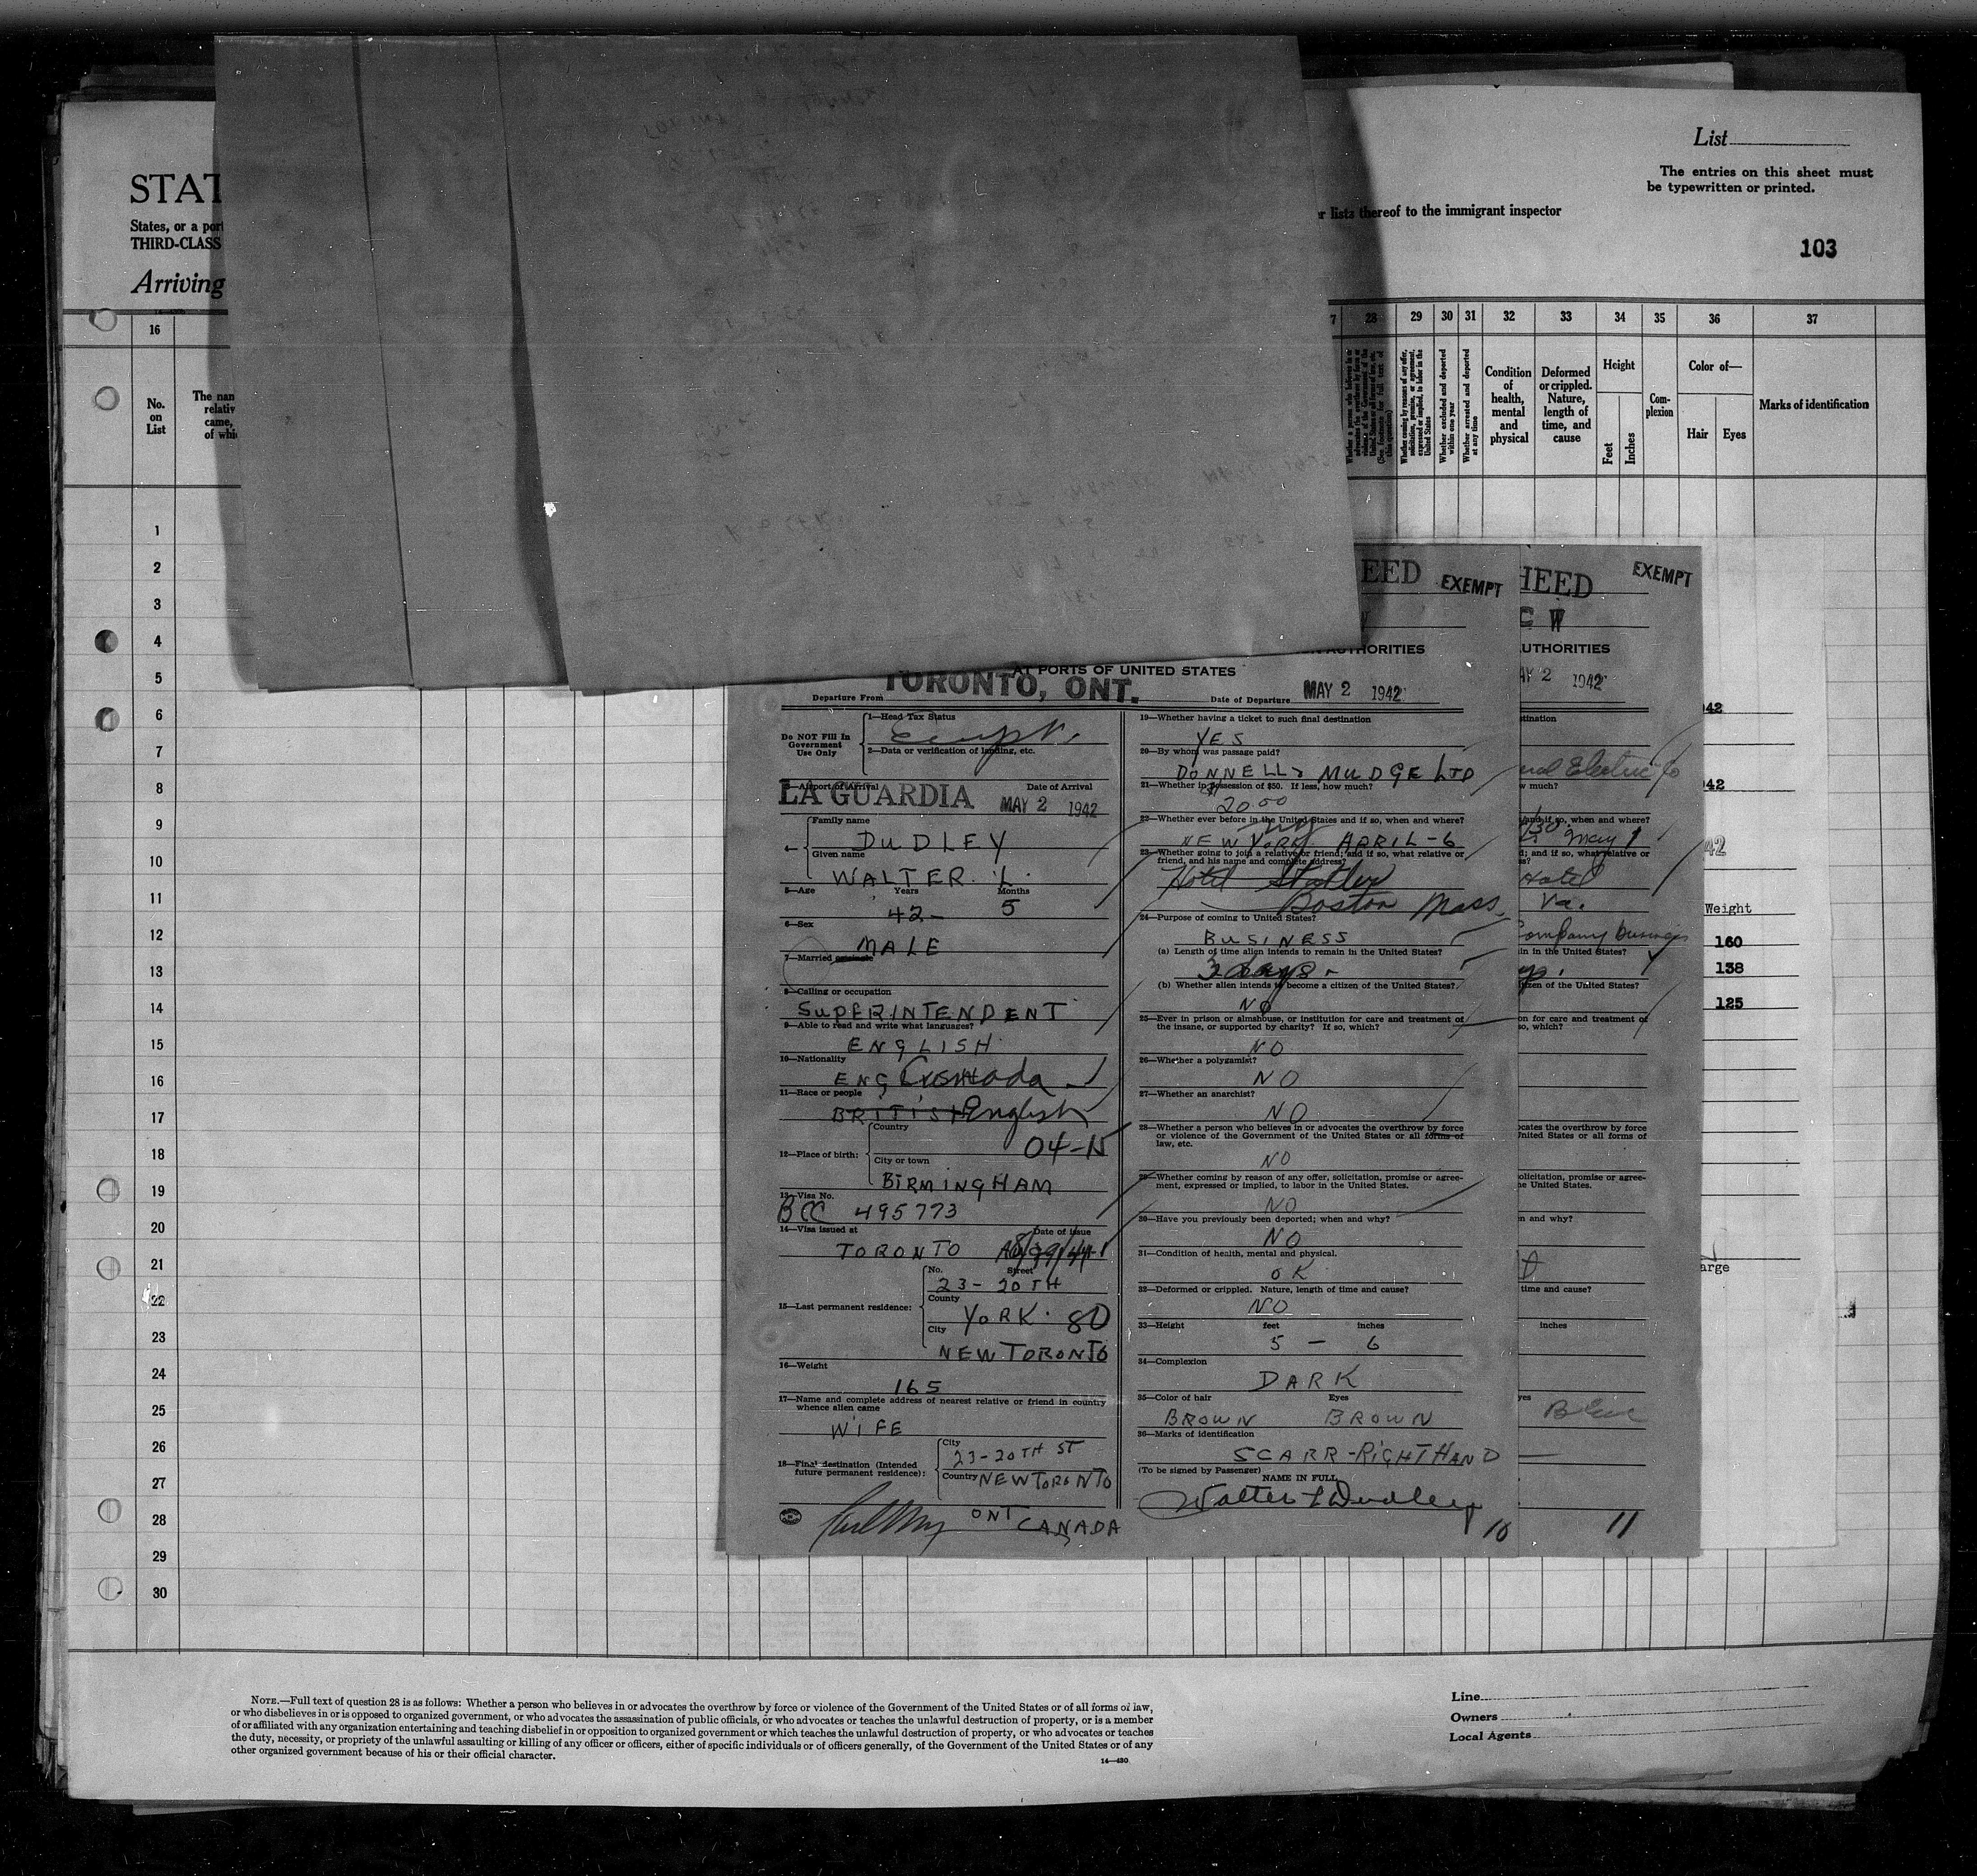 List
The entries on this sheet must
be typewritten or printed.
STAT
States, or a port
THIRD-CLASS
r lists thereof to the immigrant inspector
103
Arriving
16
28 29 30 31 32 33 34 35 36 37
No.
on
List
The nam
relativ
came,
of whi
Whether coming by reasons of any offer,
solicitation, promise, or agreement,
expressed or implied, to labor in the
United States
Whether excluded and deported
within one year
Whether arrested and deported
at any time
Condition
of
health,
mental
and
physical
Deformed
or crippled.
Nature,
length of
time, and
cause
Height
Feet
Inches
Com-
plexion
Color of—
Hair
Eyes
Marks of identification
1
2
3
4
5
6
7
8
9
10
11
12
13
14
15
16
17
18
19
20
21
22
23
24
25
26
27
28
29
30
EED EXEMPT
AUTHORITIES
AT PORTS OF UNITED STATES
Departure From TORONTO, ONT.
Date of Departure MAY 2 1942
Do NOT Fill In
Government
Use Only
1—Head Tax Status
Exempt.
2—Data or verification of landing, etc.
3—Airport of Arrival Date of Arrival
LA GUARDIA MAY 2 1942
4—
Family name
DUDLEY
Given name
WALTER. L.
5—Age Years Months
42 — 5
6—Sex
MALE
7—Married or single
8—Calling or occupation
SUPERINTENDENT
9—Able to read and write what languages?
ENGLISH
10—Nationality
ENGLISH Canada
11—Race or people
BRITISH English
12—Place of birth:
Country
04-15
City or town
BIRMINGHAM
13—Visa No.
BCC 495773
14—Visa issued at Date of issue
TORONTO
15—Last permanent residence:
No. Street
23 - 20TH
County
YORK. 80
City
NEW TORONTO
16—Weight
165
17—Name and complete address of nearest relative or friend in country
whence alien came
WIFE
18—Final destination (Intended
future permanent residence):
City
23-20TH ST
Country NEW TORONTO
ONT CANADA
19—Whether having a ticket to such final destination
YES
20—By whom was passage paid?
DONNELL & MUDGE LTD
21—Whether in possession of $50. If less, how much?
$20.00
22—Whether ever before in the United States and if so, when and where?
NEW YORK APRIL-6
23—Whether going to join a relative or friend; and if so, what relative or
friend, and his name and complete address?
Hotel Statler
Boston Mass.
24—Purpose of coming to United States?
BUSINESS
(a) Length of time alien intends to remain in the United States?
3 days.
(b) Whether alien intends to become a citizen of the United States?
NO
25—Ever in prison or almshouse, or institution for care and treatment of
the insane, or supported by charity? If so, which?
NO
26—Whether a polygamist?
NO
27—Whether an anarchist?
NO
28—Whether a person who believes in or advocates the overthrow by force
or violence of the Government of the United States or all forms of
law, etc.
NO
29—Whether coming by reason of any offer, solicitation, promise or agree-
ment, expressed or implied, to labor in the United States.
NO
30—Have you previously been deported; when and why?
NO
31—Condition of health, mental and physical.
OK
32—Deformed or crippled. Nature, length of time and cause?
NO
33—Height feet inches
5 — 6
34—Complexion
DARK
35—Color of hair Eyes
BROWN BROWN
36—Marks of identification
SCARR-RIGHT HAND
(To be signed by Passenger)
NAME IN FULL
Walter L Dudley
10
HEED EXEMPT
C W
AUTHORITIES
MAY 2 1942
stination
Electric Co
w much?
and if so, when and where?
May 1
d; and if so, what relative or
ss?
Hotel
Va.
Company business
in in the United States?
izen of the United States?
on for care and treatment of
so, which?
ocates the overthrow by force
United States or all forms of
olicitation, promise or agree-
he United States.
n and why?
time and cause?
inches
yes
Blue
11
942
942
42
Weight
160
138
125
arge
NOTE.—Full text of question 28 is as follows: Whether a person who believes in or advocates the overthrow by force or violence of the Government of the United States or of all forms of law,
or who disbelieves in or is opposed to organized government, or who advocates the assassination of public officials, or who advocates or teaches the unlawful destruction of property, or is a member
of or affiliated with any organization entertaining and teaching disbelief in or opposition to organized government or which teaches the unlawful destruction of property, or who advocates or teaches
the duty, necessity, or propriety of the unlawful assaulting or killing of any officer or officers, either of specific individuals or of officers generally, of the Government of the United States or of any
other organized government because of his or their official character.
14—430
Line
Owners
Local Agents